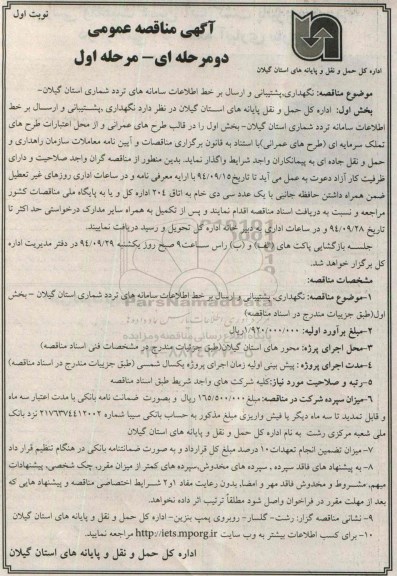 نوبت اول
آگهی مناقصه عمومی
دومرحله ای- مرحله اول
اداره کل حمل و نقل و پایانه های استان گیلان
موضوع مناقصه: نگهداری،پشتیبانی و ارسال بر خط اطلاعات سامانه های تردد شماری استان گیلان-
بخش اول: اداره کل حمل و نقل پایانه های استان گیلان در نظر دارد نگهداری ،پشتیبانی و ارسال بر خط
اطلاعات سامانه تردد شماری استان گیلان- بخش اول را در قالب طرح های عمرانی و از محل اعتبارات طرح های
تملک سرمایه ای (طرح های عمرانی)با استناد به قانون برگزاری مناقصات و آیین نامه معاملات سازمان راهداری و
حمل و نقل جاده ای به پیمانکاران واجد شرایط واگذار نماید. بدین منظور از مناقصه گران واجد صلاحیت و دارای
ظرفیت کار آزاد دعوت به عمل می آید تا تاریخ ۹۴/۰۹/۱۵ با ارایه معرفی نامه و در ساعات اداری روزهای غیر تعطیل
ضمن همراه داشتن حافظه جانبی با یک عدد سی دی خام به اتاق ۲۰۴ اداره کل و یا به پایگاه ملی مناقصات کشور
مراجعه و نسبت به دریافت اسناد مناقصه اقدام نمایند و پس از تکمیل به همراه سایر مدارک درخواستی حد اکثر تا
تاریخ ۹۴/۰۹/۲۸ و در ساعات اداری به دبیر خانه اداره کل تحویل و رسید دریافت نمایند.
جلسه بازگشایی پاکت های (الف) و (ب) راس ساعت ۹ صبح روز یکشنبه ۹۴/۰۹/۲۹ در دفتر مدیریت اداره
کل برگزار خواهد شد.
مشخصات مناقصه:
۱-موضوع مناقصه: نگهداری، پشتیبانی و ارسال بر خط اطلاعات سامانه های تردد شماری استان گیلان - بخش
اول(طبق جزییات مندرج در اسناد مناقصه)
۲-مبلغ برآورد اولیه: ۱/۹۲۰/۰۰۰/۰۰۰ ریال
۳-محل اجرای پرژه: محور های استان گیلان(طبق جزئیات مندرج در مشخصات فنی اسناد مناقصه)
۴-مدت اجرای پروژه : پیش بینی اولیه زمان اجرای پروژه یکسال شمسی (طبق جزییات مندرج در اسناد مناقصه)
۵-رتبه و صلاحیت مورد نیاز:کلیه شرکت های واجد شریط طبق اسناد مناقصه
۶-میزان سپرده شرکت در مناقصه: مبلغ ۱۶۵/۵۰۰/۰۰۰ ریال و بصورت ضمانت نامه بانکی با مدت اعتبار سه ماه
و قابل تمدید تا سه ماه دیگر یا فیش واریزی مبلغ مذکور به حساب بانکی سیبا شماره ۲۱۷۶۳۷۴۴۱۲۰۰۲ نزد بانک
ملی شعبه مرکزی رشت به نام اداره کل حمل و نقل و پایانه های استان گیلان
۷-میزان تضمین انجام تعهدات ۱۰ درصد مبلغ کل قرارداد و به صورت ضمانتنامه بانکی در هنگام تنظیم قرار داد
۸- به پیشنهاد های فاقد سپرده ، سپرده های مخدوش،سپرده های کمتر از میزان مقرر، چک شخصی، پیشنهادات
مبهم، مشروط و مخدوش فاقد مهر و امضا، بدون رعایت مفاد ۱و۲ شرایط اختصاصی مناقصه و پیشنهاد هایی که
بعد از مهلت مقرر در فراخوان واصل شود مطلقاً ترتیب اثر داده نخواهد.
۹- نشانی مناقصه گزار: رشت- گلسار- روبروی پمپ بنزین- اداره کل حمل و نقل و پایانه های استان گیلان
۱۰- برای کسب اطلاعات بیشتر به وب سایت http://iets.mporg.ir مراجعه نمایید.
اداره کل حمل و نقل و پایانه های استان گیلان